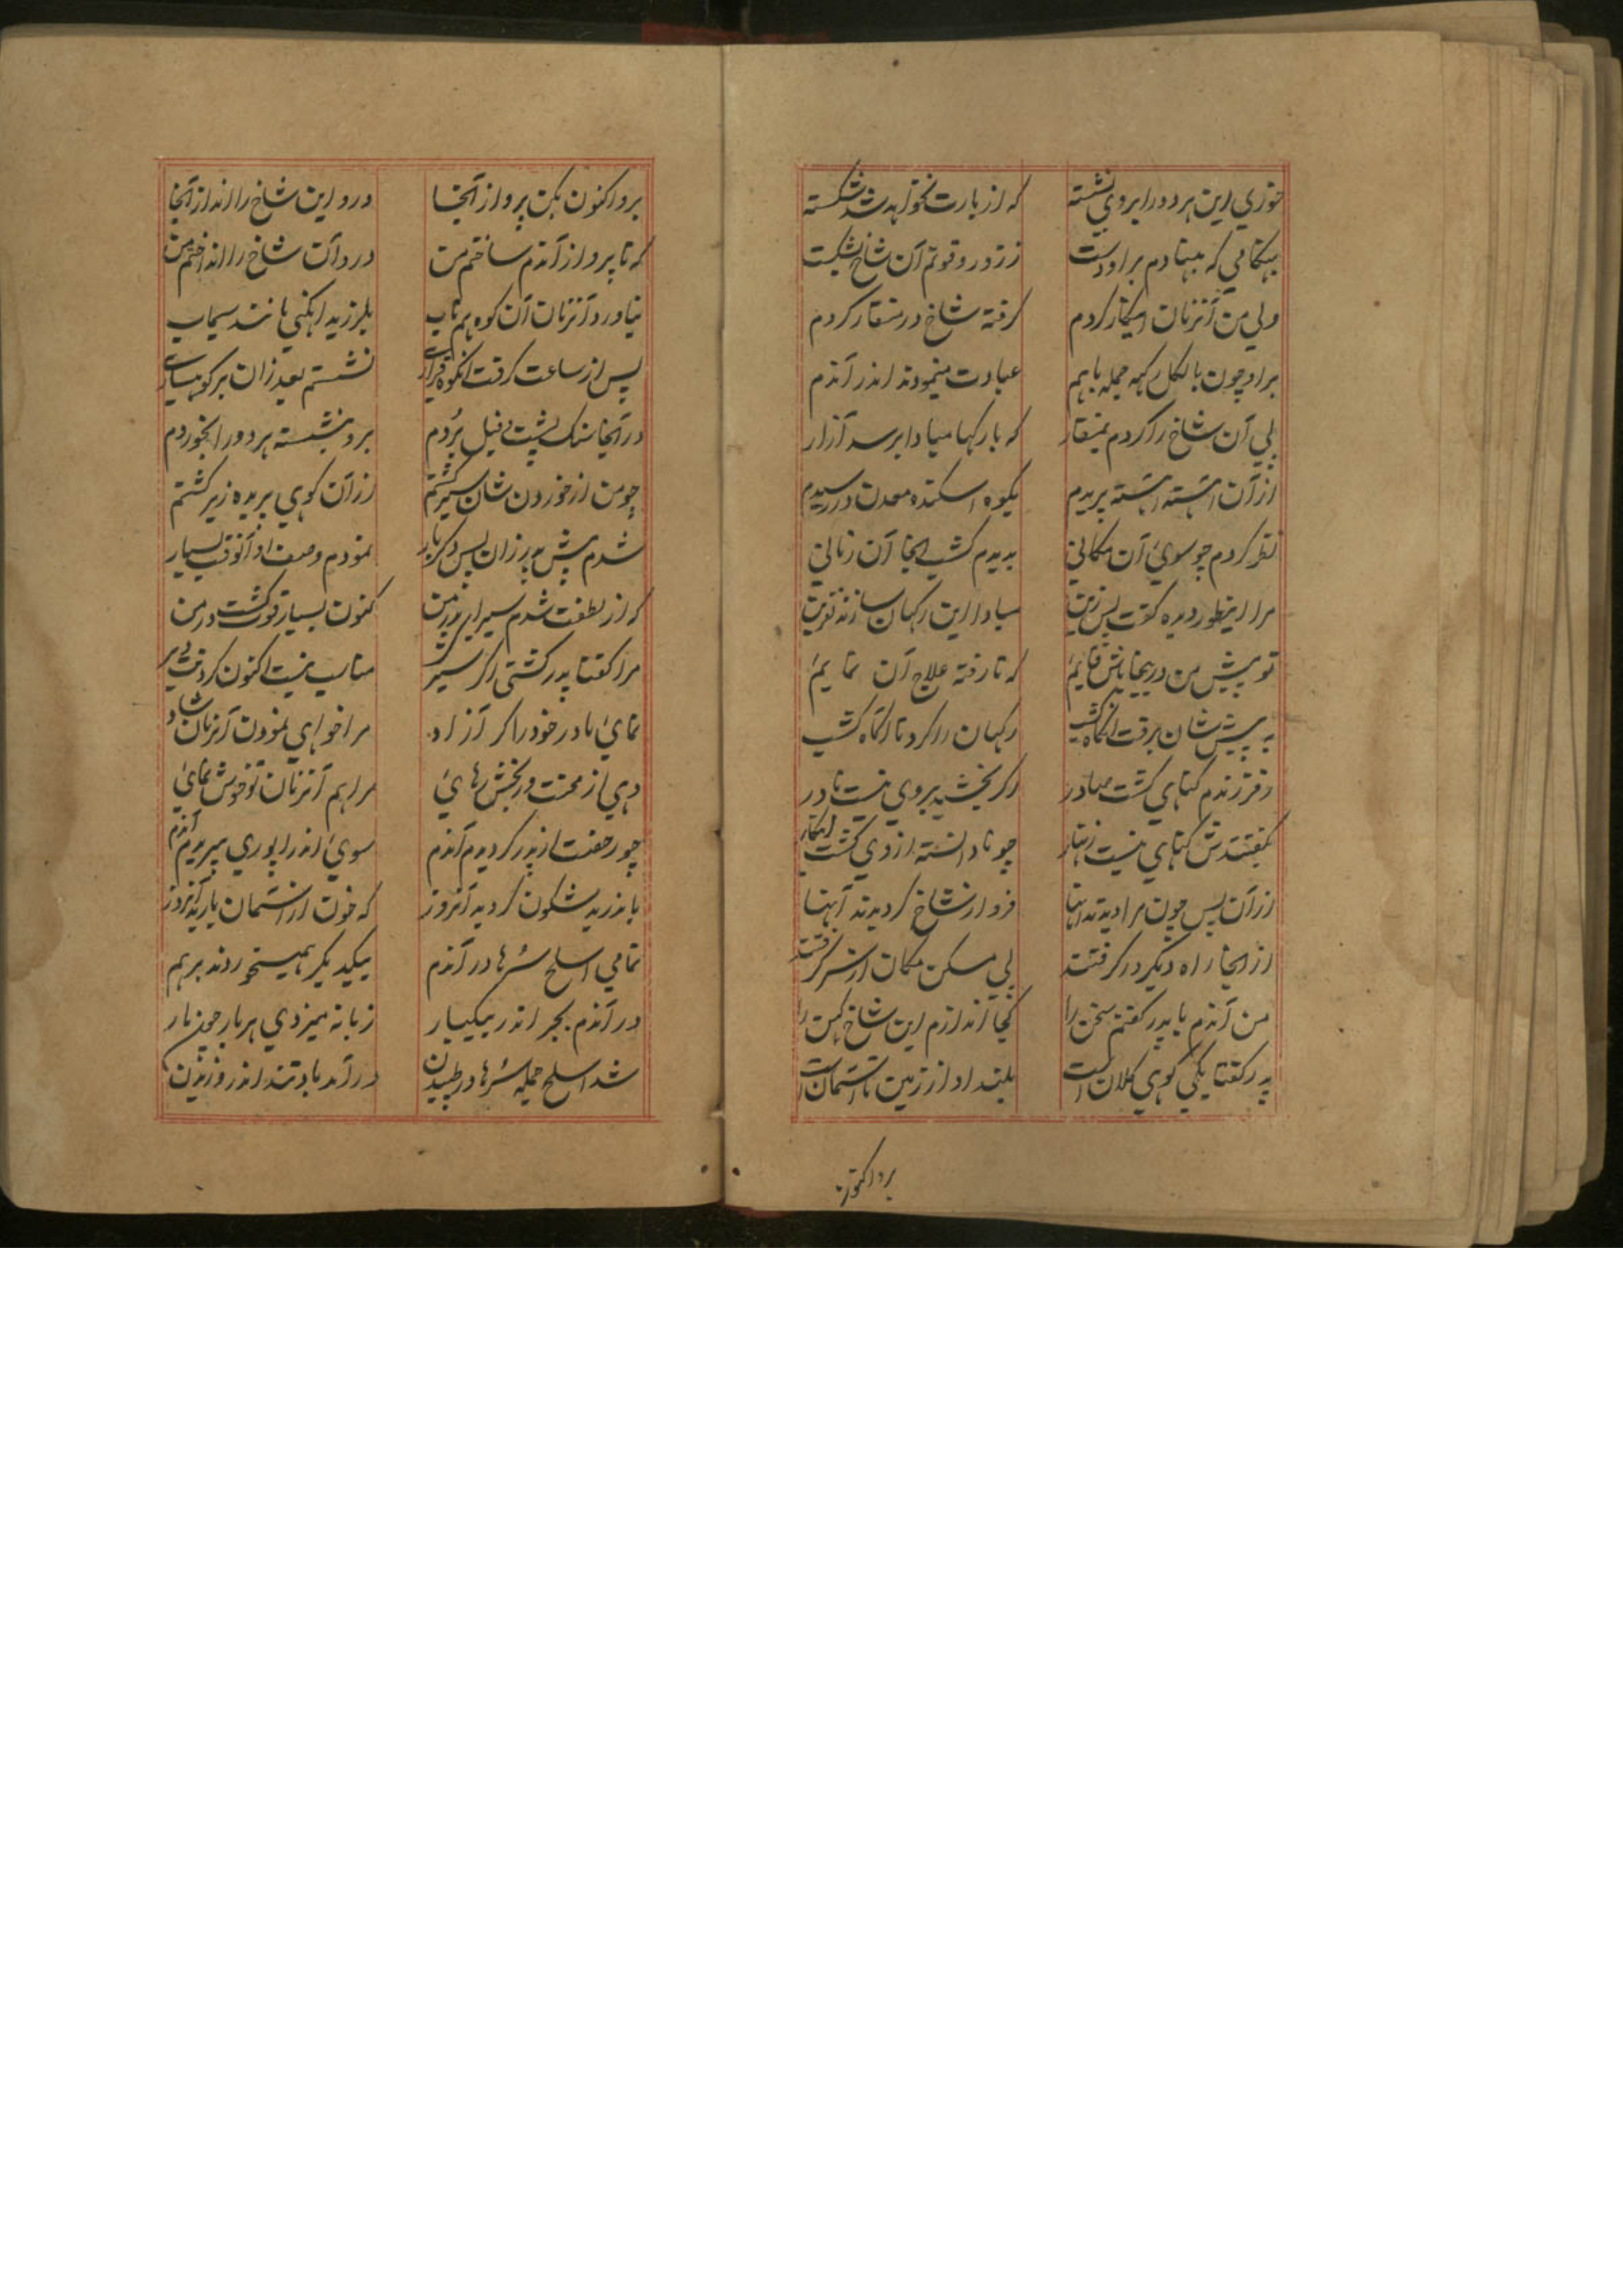 خوري اين هر دو را بروي نشسته که از بارت نخواهد شد شکسته
بهنگامي که بنهادم براو دست ز زور و قوتم آن شاخ بشکست
ولي من آنزمان اينکار کردم گرفته شاخ در منقار کردم
براو چون بالکل کهه جمله باهم عبادت مينمودند اندر آندم
پي آن شاخ را کردم بمنقار که بارکها مبادا برسد آزار
از آن آهسته آهسته پريدم بکوه اسکنده معدن در رسيدم
نظر کردم چو سوي آن مکاني بديدم کشب اينجا آن زماني
مرا اينطور ديده گفت پس زين مبادا اين رکهان سازند نفرين
تو پيش من در اينجا باش قايم که تا رفته علاج آن نمايم
به پيش شان برفت آنگاه کشب رکهان را کرد تا آنگاه کشب
ز فرزندم گناهي گشت صادر اگر بخشيد بروي نيست نادر
بگفتندش گناهي نيست زنهار چو نادانسته از وي گشت اينکار
از آن پس چون مرا ديدند آنها فرو از شاخ گرديدند آنها
از آنجا راه ديگر در گرفتند پي مسکن مکان از سر گرفتند
من آندم با پدر گفتم سخن را کجا اندازم اين شاخ کهن را
پدر گفتا يکي کوهي کلان است بلند او از زمين تا آسمان است
برو اکنون
برو اکنون بکن پرواز آنجا درو اين شاخ را انداز آنجا
که تا پرواز آندم ساختم من درو آن شاخ را انداختم من
نياورد آنزمان آن کوه هم تاب بلرزيد مانند سيماب
پس از ساعت گرفت آنکوه قراري نشستم بعد زان بر کوهساري
در آنجا سنگ پشت و فيل بردم برو بنشسته هر دو را بخوردم
چو من از خوردن شان سير گشتم از آن کوهي پريده زير گشتم
شدم پيش پدر زان پس دگربار نمودم وصف او آنوقت بسيار
که از لطفت شدم سير اي پدر من کنون بسيار قوت گشت در من
مرا گفتا پدر گشتي اگر سير مناسب نيست اکنون کردنت دير
نمائي مادر خود را گر آزاد مرا خواهي نمودن آنزمان شاد
دهي از محنت و رنجش رهائي مرا هم آنزمان تو خوش نمائي
چو رخصت از پدر گرديدم آندم سوي اندرا پوري ميپريدم آندم
باندر بد شگون گرديد آنروز که خون از آسمان باريد آنروز
تمامي اسلح سرها در آندم بيکديگر هميخوردند برهم
در آندم بجر اندر بيکبار زبانه ميزدي هر بار چون نار
شد اسلح جمله سرها در طپيدن درآمد باد تند اندر وزيدن